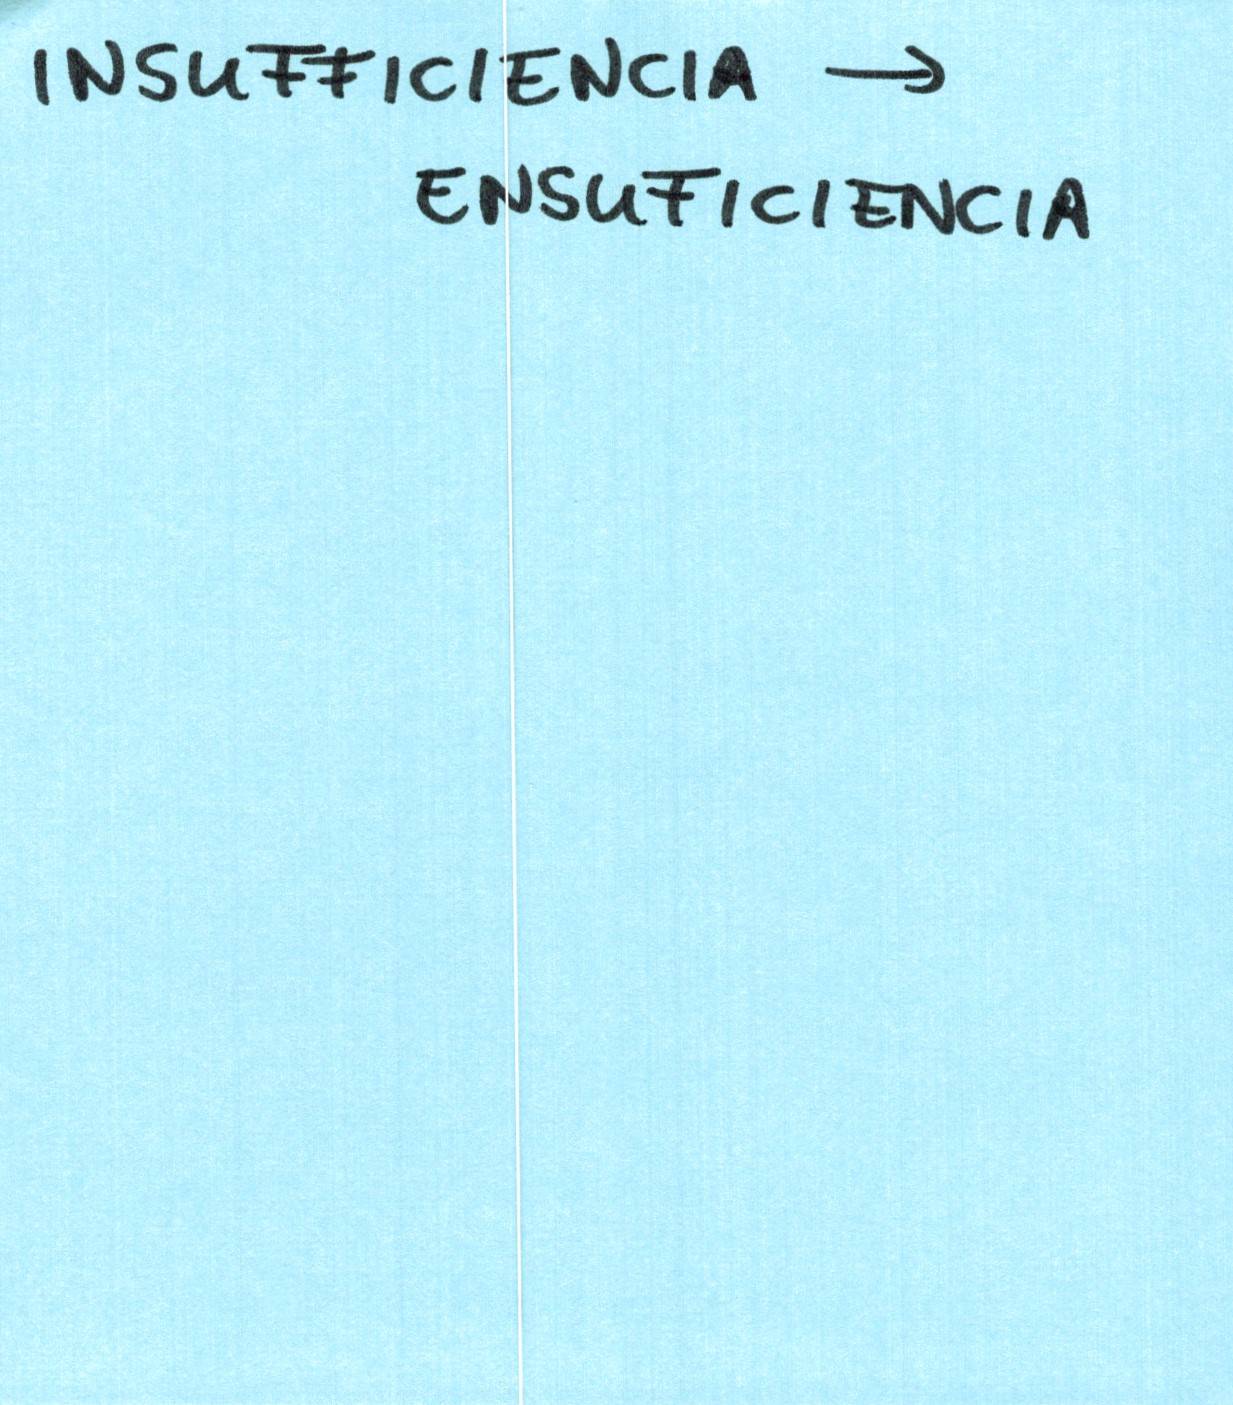 INSUFFICIENCIA →
ENSUFICIENCIA